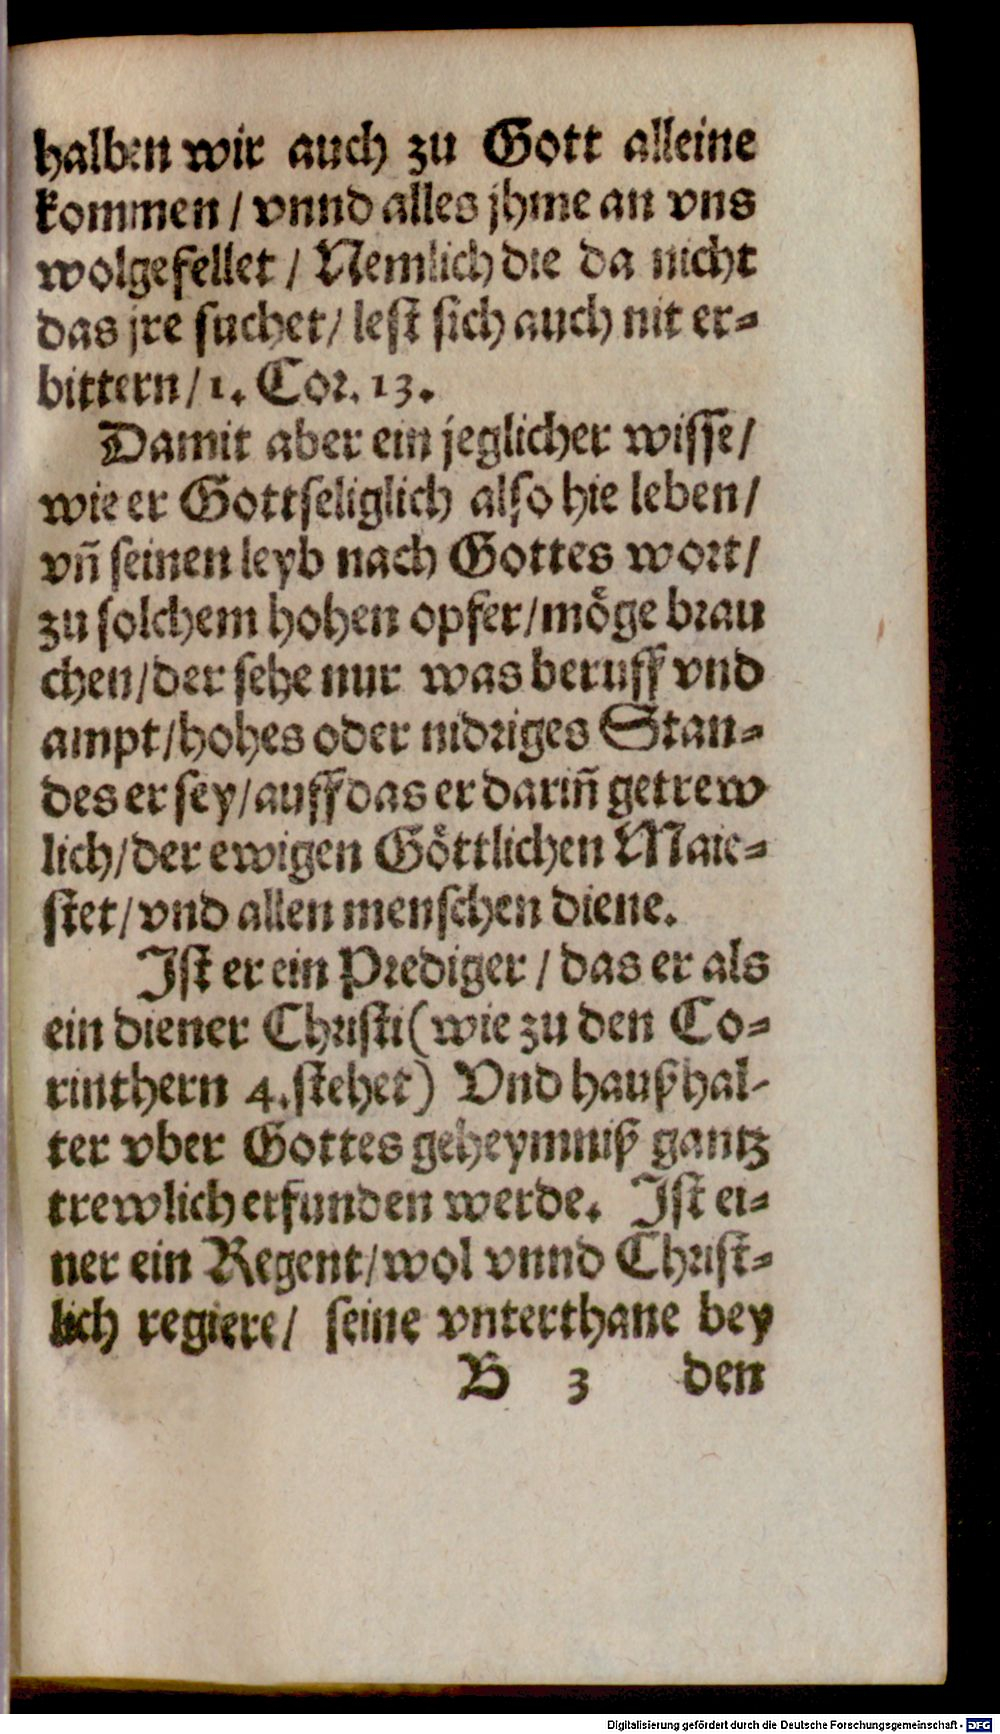 halben wir auch zu Gott alleine
kommen / vnnd alles jhme an vns
wolgefellet / Nemlich die da nicht
das jre suchet / lest sich auch nit er⸗
bittern / 1. Cor. 13.
Damit aber ein jeglicher wisse /
wie er Gottseliglich also hie leben /
vñ seinen leyb nach Gottes wort /
zu solchem hohen opfer / möge brau
chen / der sehe nur was beruff vnd
ampt / hohes oder nidriges Stan⸗
des er sey / auff das er dariñ getrew
lich / der ewigen Göttlichen Maie⸗
stet / vnd allen menschen diene.
Ist er ein Prediger / das er als
ein diener Christi (wie zu den Co⸗
rinthern 4. stehet) Vnd haußhal⸗
ter vber Gottes geheymniß gantz
trewlich erfunden werde. Ist ei⸗
ner ein Regent / wol vnnd Christ⸗
lich regiere / seine vnterthane bey
B 3 den
Digitalisierung gefördert durch die Deutsche Forschungsgemeinschaft - DFG